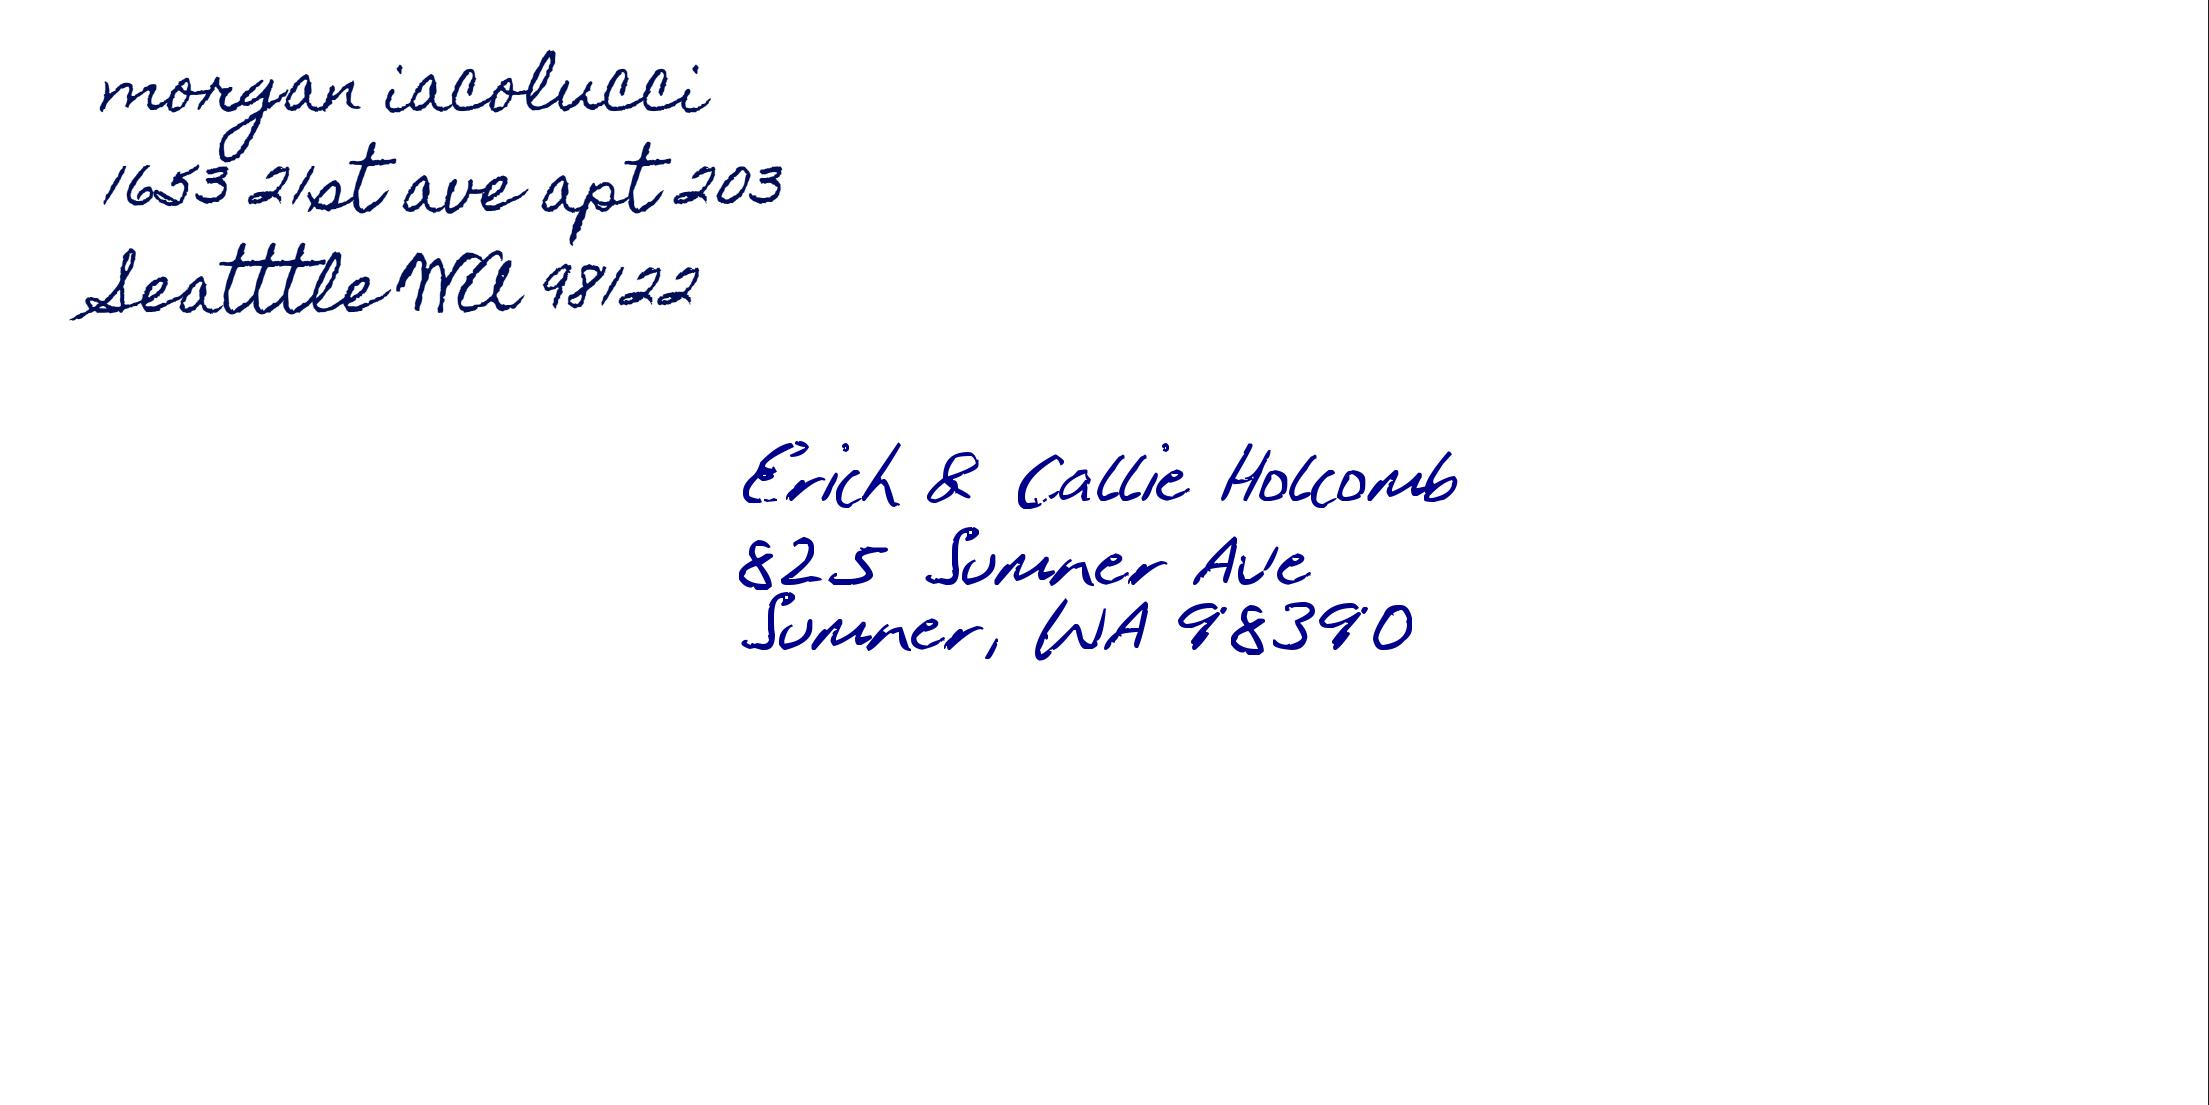 morgan iacolucci
1653 21st ave apt 203
Seatttle WA 98122
Erich & Callie Holcomb
825 Sumner Ave
Sumner, WA 98390